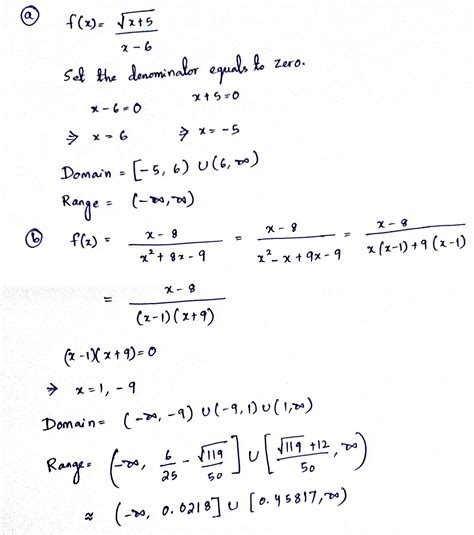 (a) f(x) = √(x+5) / (x-6)
Set the denominator equals to zero.
x-6=0    x+5=0
⇒ x=6    ⇒ x=-5
Domain = [-5, 6) ∪ (6, ∞)
Range = (-∞, ∞)
(b) f(x) = (x-8) / (x²+8x-9) = (x-8) / (x²-x+9x-9) = (x-8) / (x(x-1)+9(x-1))
= (x-8) / ((x-1)(x+9))
(x-1)(x+9)=0
⇒ x=1, -9
Domain = (-∞, -9) ∪ (-9, 1) ∪ (1, ∞)
Range = (-∞, 6/25 - √119/50] ∪ [(√119+12)/50, ∞)
≈ (-∞, 0.0218] ∪ [0.45817, ∞)